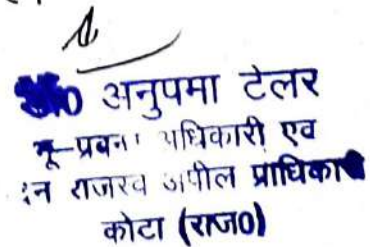 अनुपमा टेलर
भू-प्रबन्ध अधिकारी एव
राजस्व अपील प्राधिकारी
कोटा (राज0)